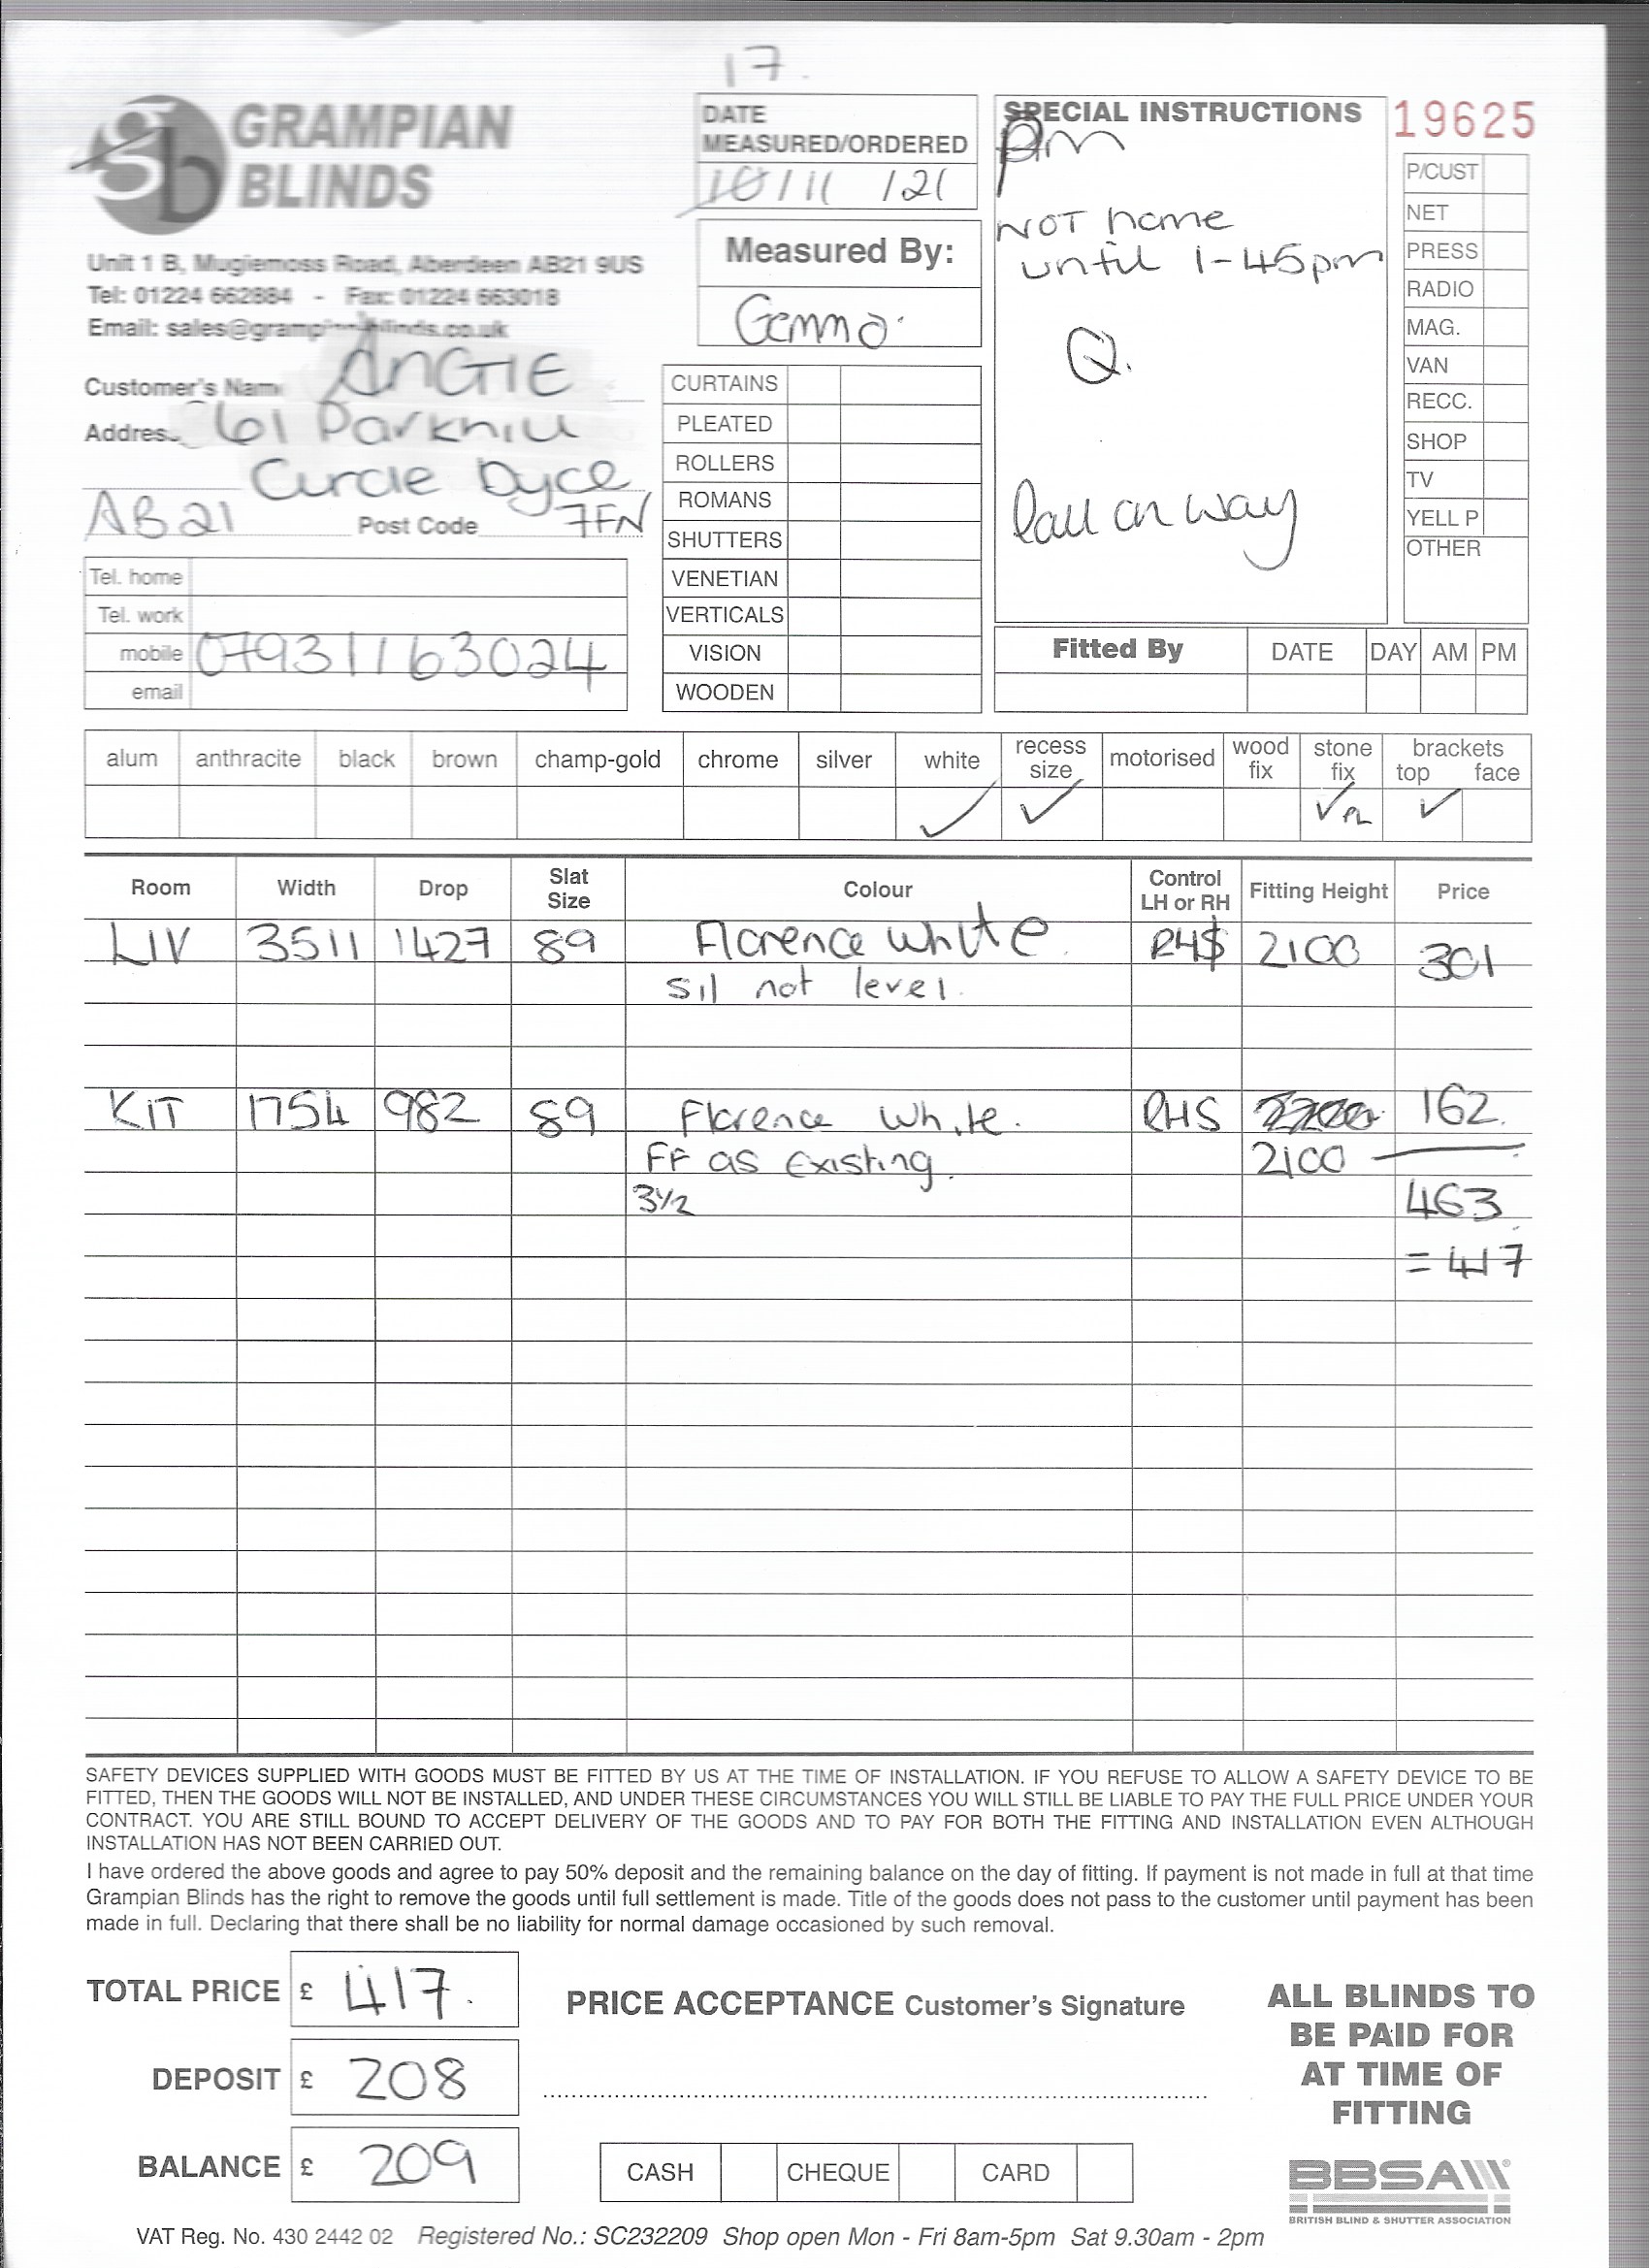 17
GRAMPIAN
BLINDS
Unit 1 B, Mugiemoss Road, Aberdeen AB21 9US
Tel: 01224 662884 - Fax: 01224 663018
Email: sales@grampianblinds.co.uk
Customer's Name ANGIE
Address 61 Parkhill
Circle Dyce
AB21 Post Code 7FN
Tel. home
Tel. work
mobile 07931163024
email
DATE
MEASURED/ORDERED
10/11/21
Measured By:
Gemma
CURTAINS
PLEATED
ROLLERS
ROMANS
SHUTTERS
VENETIAN
VERTICALS
VISION
WOODEN
SPECIAL INSTRUCTIONS
pm
NOT home
until 1-45pm
Q.
Call on way
19625
P/CUST
NET
PRESS
RADIO
MAG.
VAN
RECC.
SHOP
TV
YELL P
OTHER
Fitted By DATE DAY AM PM
alum anthracite black brown champ-gold chrome silver white recess size motorised wood fix stone fix brackets top face
✓ ✓ ✓ PL ✓
Room Width Drop Slat Size Colour Control LH or RH Fitting Height Price
LIV 3511 1427 89 Florence White RHS 2100 301
Sil not level.
KIT 1754 982 89 Florence White. RHS 2200 162.
FF as Existing. 2100
3½ 463
= 417
SAFETY DEVICES SUPPLIED WITH GOODS MUST BE FITTED BY US AT THE TIME OF INSTALLATION. IF YOU REFUSE TO ALLOW A SAFETY DEVICE TO BE
FITTED, THEN THE GOODS WILL NOT BE INSTALLED, AND UNDER THESE CIRCUMSTANCES YOU WILL STILL BE LIABLE TO PAY THE FULL PRICE UNDER YOUR
CONTRACT. YOU ARE STILL BOUND TO ACCEPT DELIVERY OF THE GOODS AND TO PAY FOR BOTH THE FITTING AND INSTALLATION EVEN ALTHOUGH
INSTALLATION HAS NOT BEEN CARRIED OUT.
I have ordered the above goods and agree to pay 50% deposit and the remaining balance on the day of fitting. If payment is not made in full at that time
Grampian Blinds has the right to remove the goods until full settlement is made. Title of the goods does not pass to the customer until payment has been
made in full. Declaring that there shall be no liability for normal damage occasioned by such removal.
TOTAL PRICE £ 417.
DEPOSIT £ 208
BALANCE £ 209
PRICE ACCEPTANCE Customer's Signature
CASH CHEQUE CARD
ALL BLINDS TO
BE PAID FOR
AT TIME OF
FITTING
BBSA
BRITISH BLIND & SHUTTER ASSOCIATION
VAT Reg. No. 430 2442 02 Registered No.: SC232209 Shop open Mon - Fri 8am-5pm Sat 9.30am - 2pm